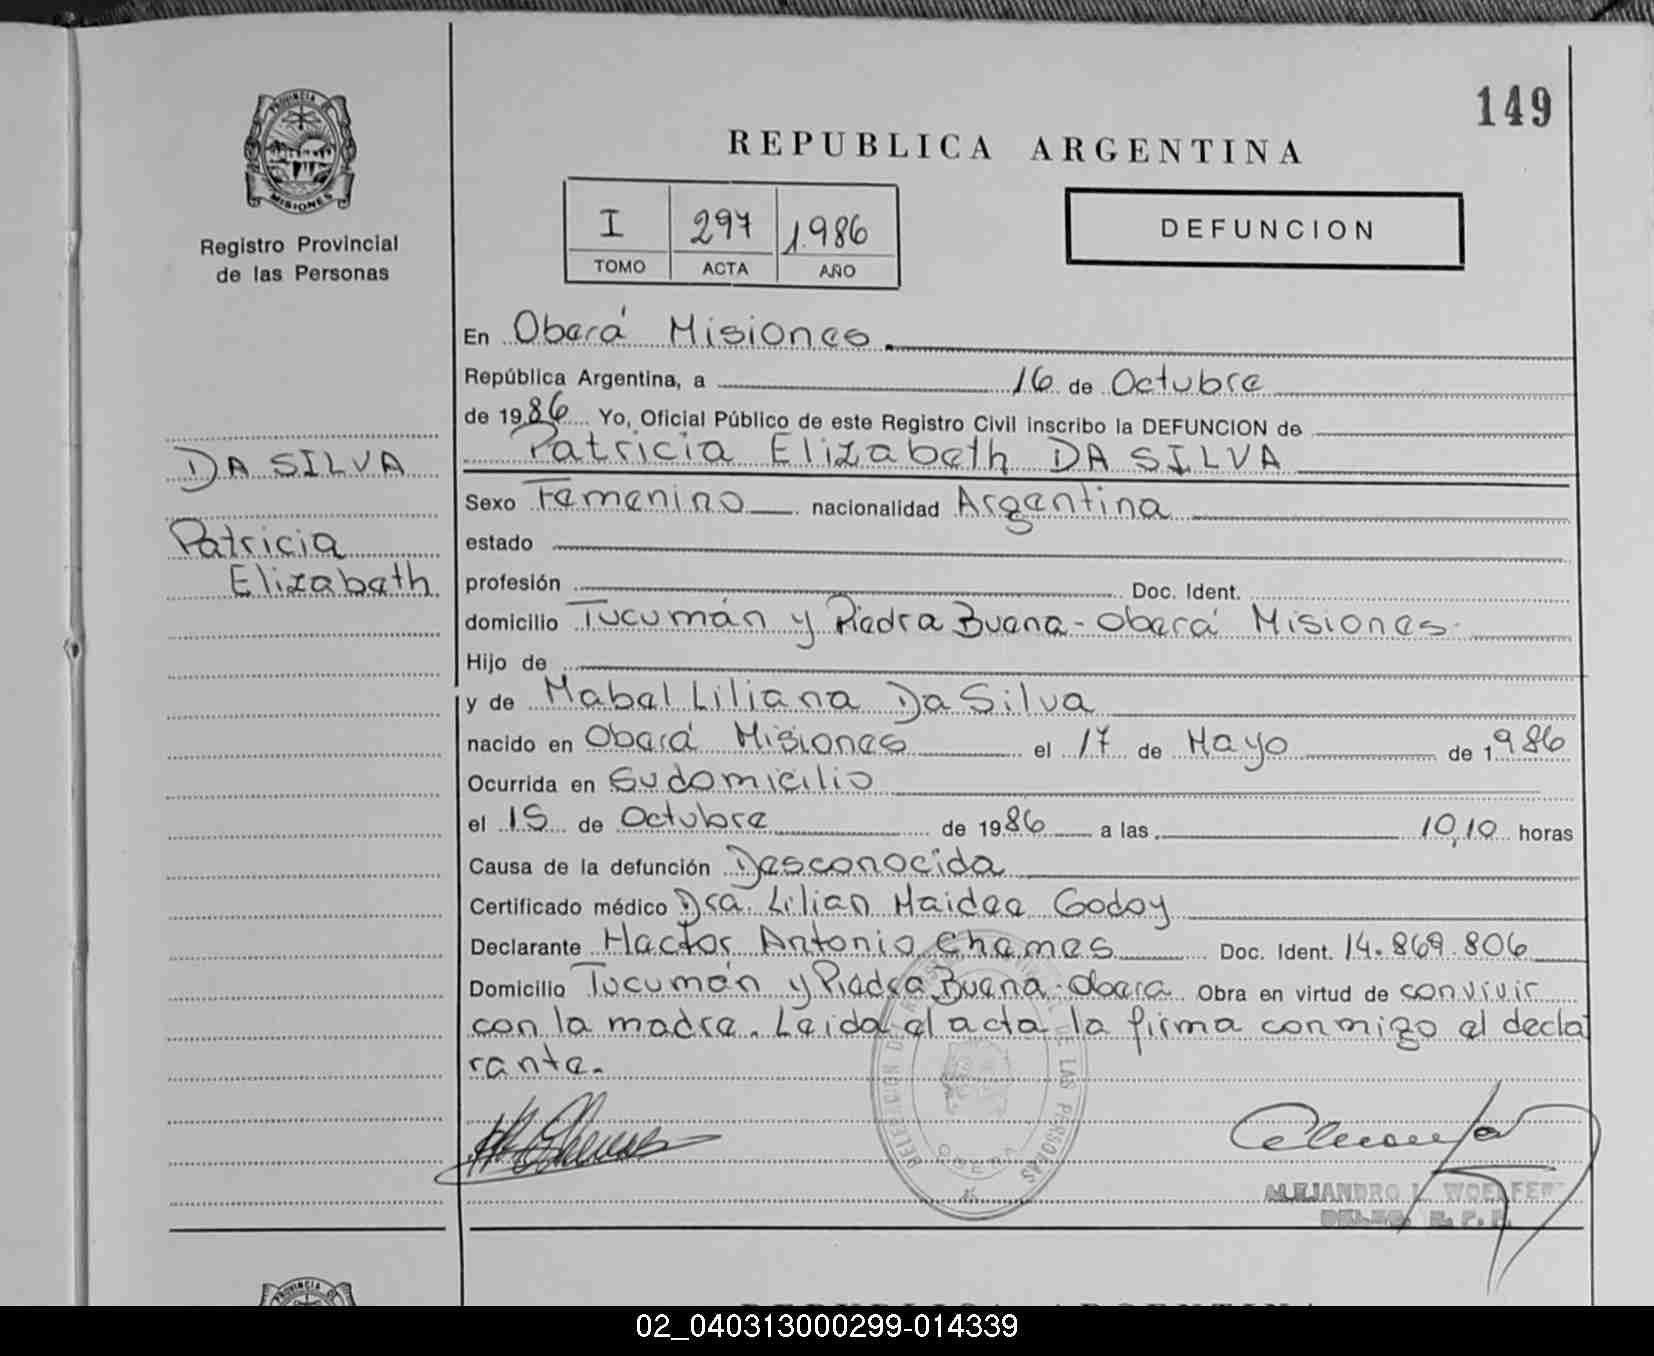 149
REPUBLICA ARGENTINA
PROVINCIA DE
MISIONES
Registro Provincial
de las Personas
I 297 1.986
TOMO ACTA AÑO
DEFUNCION
En Oberá Misiones.
República Argentina, a 16 de Octubre
de 1986 Yo, Oficial Público de este Registro Civil inscribo la DEFUNCION de
Patricia Elizabeth DA SILVA
DA SILVA
Patricia
Elizabeth
Sexo Femenino nacionalidad Argentina
estado
profesión Doc. Ident.
domicilio Tucumán y Piedra Buena - Oberá Misiones
Hijo de
y de Mabel Liliana Da Silva
nacido en Oberá Misiones el 17 de Mayo de 1986
Ocurrida en Su domicilio
el 15 de Octubre de 1986 a las 10,10 horas
Causa de la defunción Desconocida
Certificado médico Dra. Lilian Haidee Godoy
Declarante Hector Antonio Chemes Doc. Ident. 14.869.806
Domicilio Tucumán y Piedra Buena - Obera Obra en virtud de convivir
con la madre. Leida el acta la firma conmigo el decla
rante.
DE LAS PERSONAS
OBERA
ALEJANDRO L.
REPUBLICA ARGENTINA
02_040313000299-014339